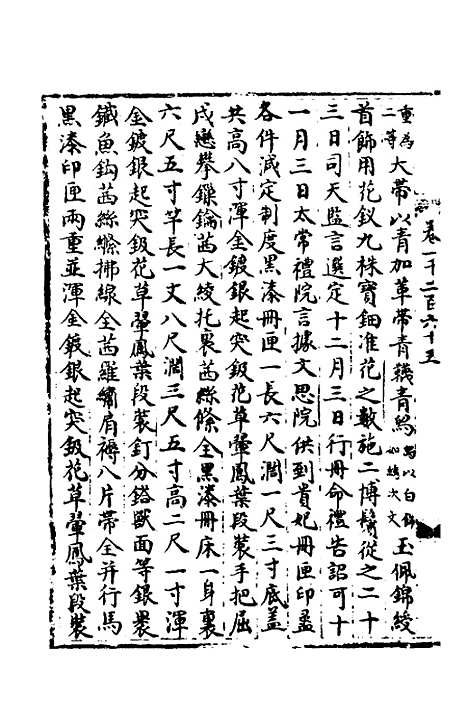 卷一千二百六十五
重為二等大帶以青加革帶青韈青舄舄以白飾如績次文玉佩錦綬
首飾用花釵九株寶鈿准花之數施二博鬢從之二十
三日司天監言選定十二月三日行冊命禮告詔可十
一月三日太常禮院言據文思院供到貴妃冊匣印盝
各件減定制度黑漆冊匣一長六尺濶一尺三寸底蓋
共高八寸渾金鍍銀起突鈒花草翬鳳葉段裝手把屈
戌戀攀鏁鑰茜大綾托裏茜絲絛全黑漆冊床一身裏
六尺五寸竿長一丈八尺濶三尺五寸高二尺一寸渾
金鍍銀起突鈒花草翬鳳葉段裝釘分鐺獸面等銀褁
鐵魚鈎茜絲縧拂線全茜羅繡肩褥八片帶全并行馬
黑漆印匣兩重並渾金鍍銀起突鈒花草翬鳳葉段裝